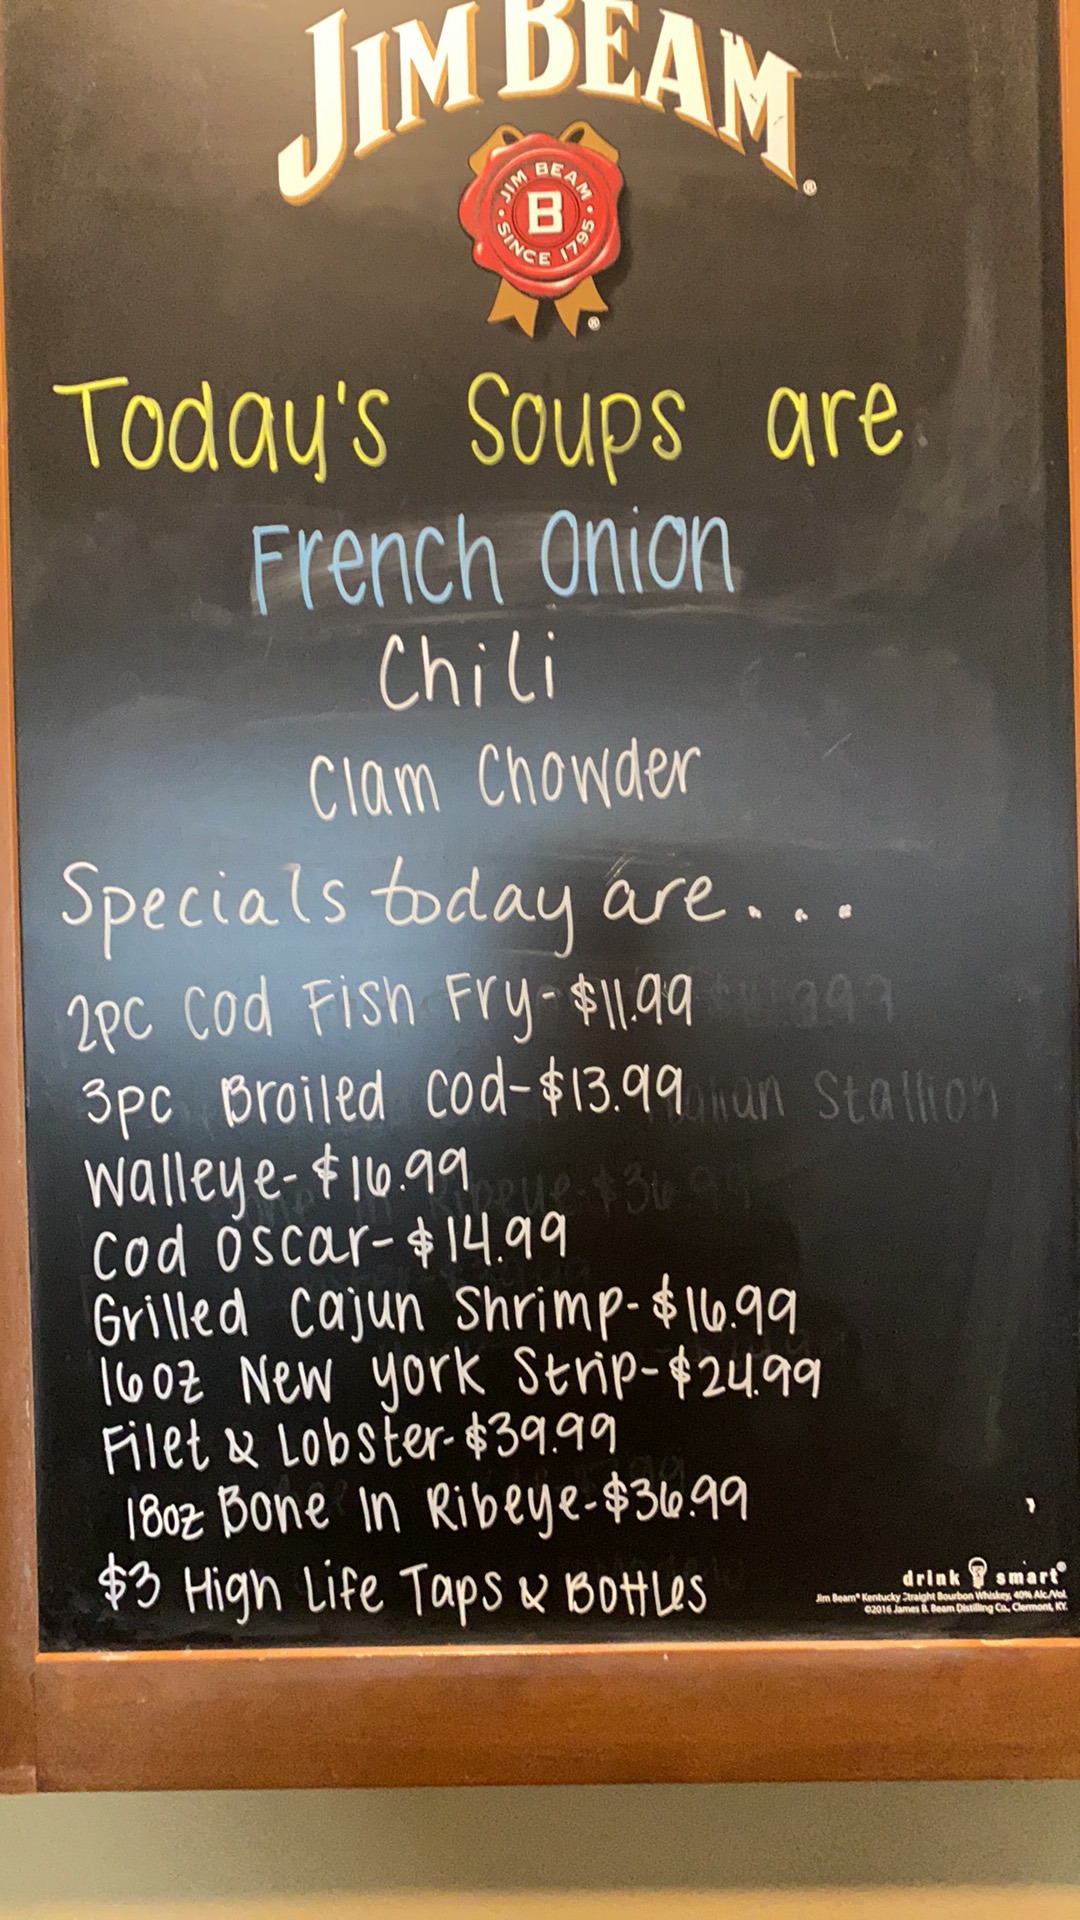 JIM BEAM®
JIM BEAM
B
SINCE 1795
®
Today's Soups are
French Onion
Chili
Clam Chowder
Specials today are...
2pc Cod Fish Fry-$11.99
3pc Broiled Cod-$13.99
Walleye-$16.99
Cod Oscar-$14.99
Grilled Cajun Shrimp-$16.99
16oz New York Strip-$24.99
Filet & Lobster-$39.99
18oz Bone In Ribeye-$36.99
$3 High Life Taps & Bottles
drink smart®
Jim Beam® Kentucky Straight Bourbon Whiskey, 40% Alc./Vol.
©2016 James B. Beam Distilling Co., Clermont, KY.